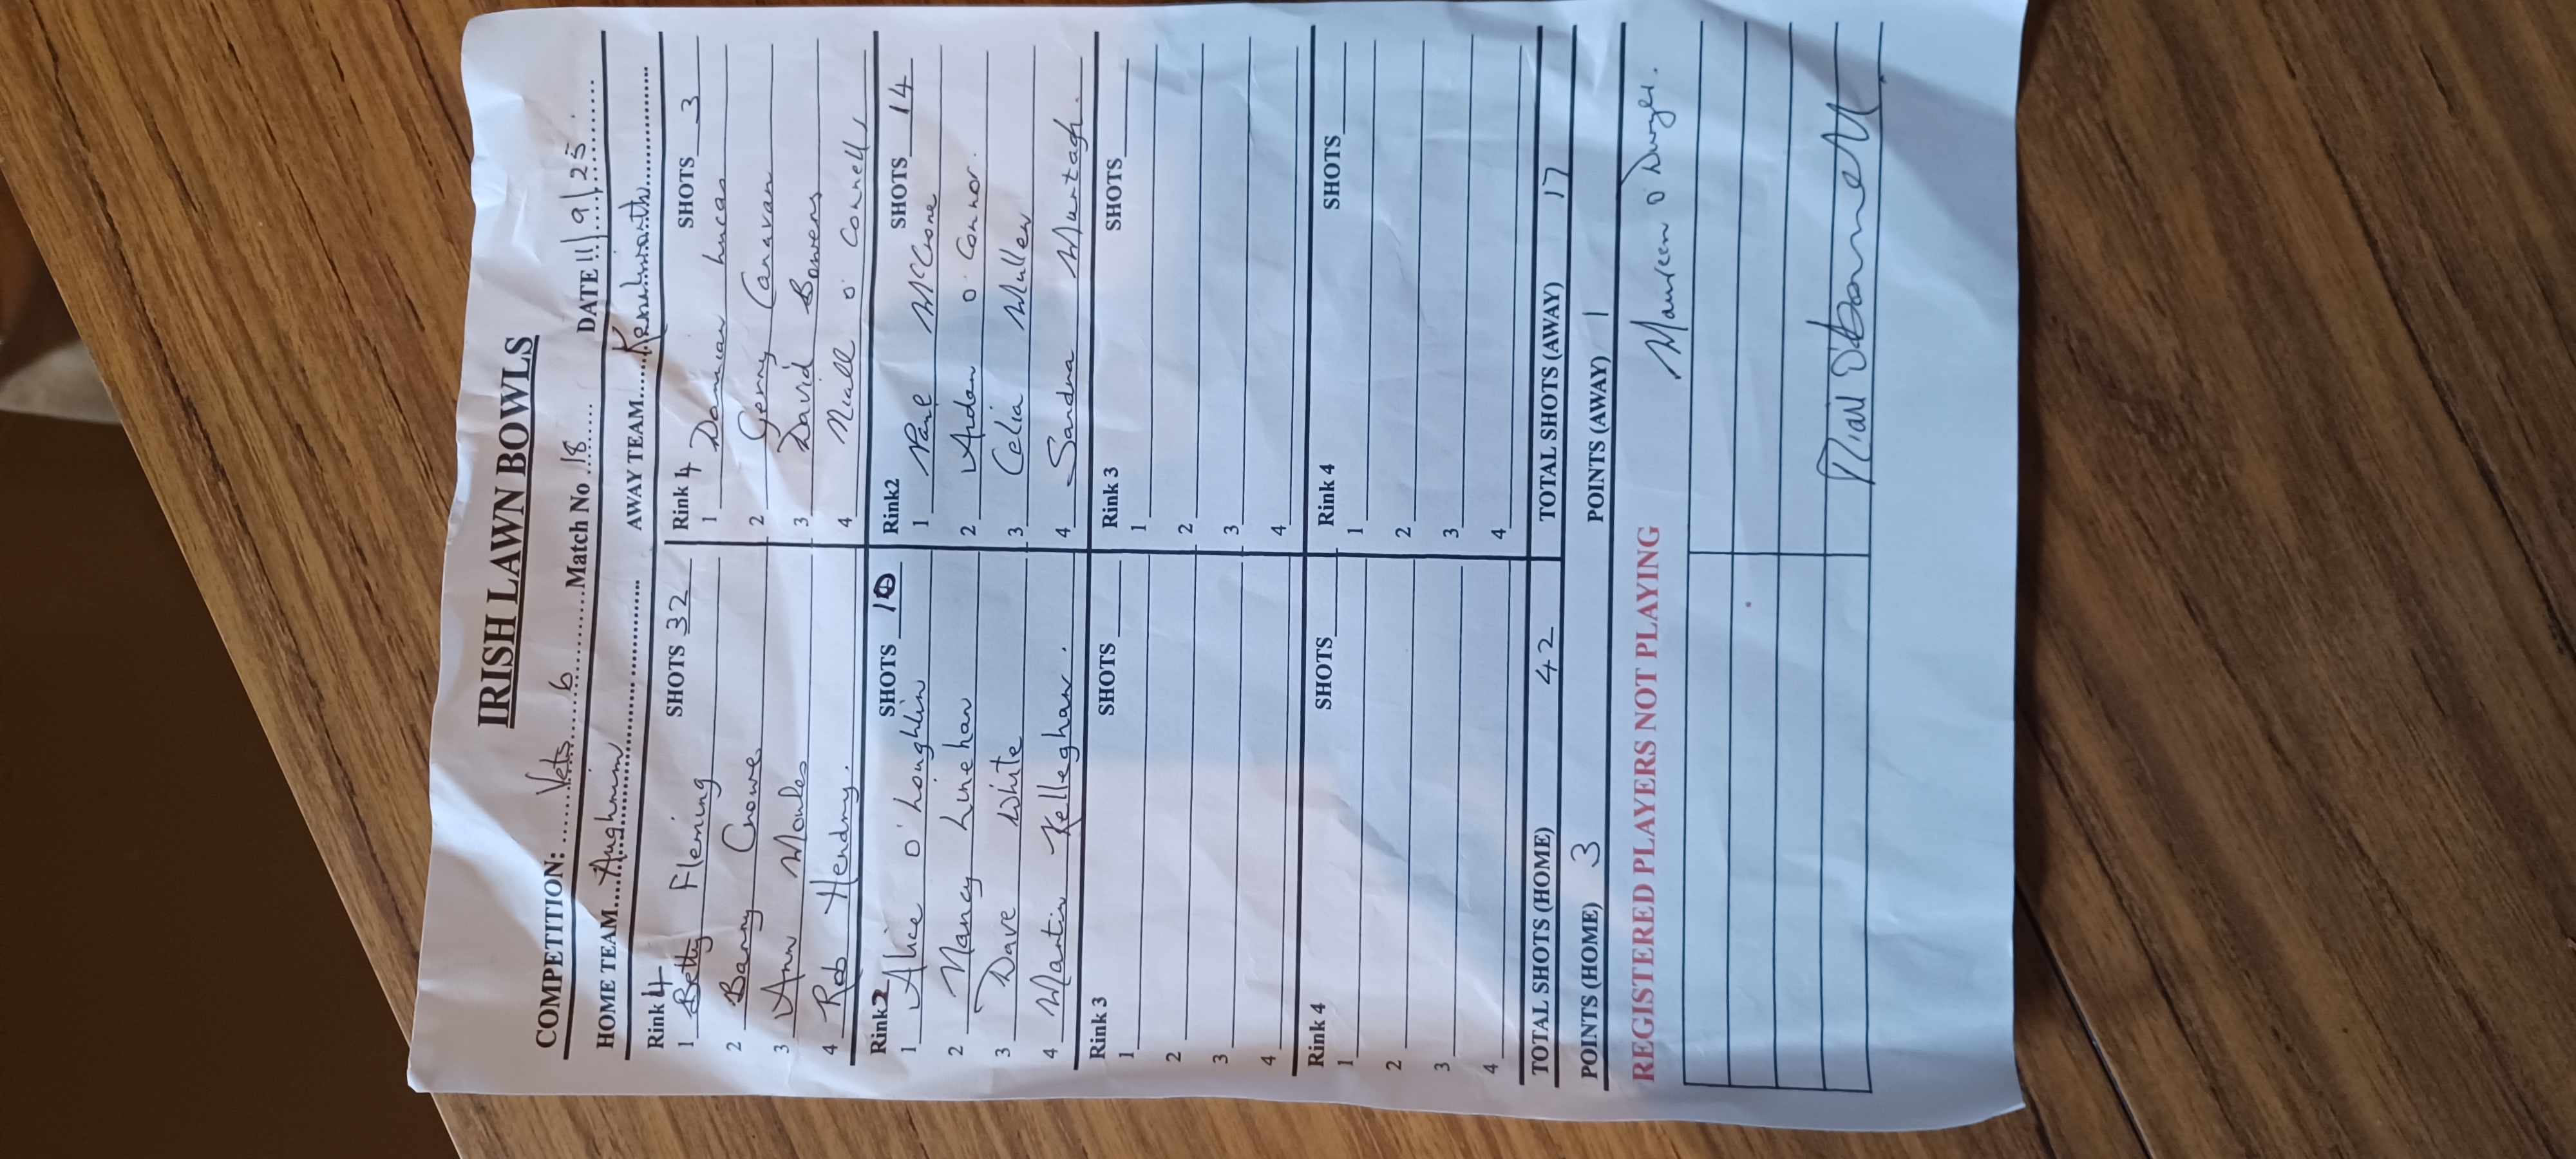 IRISH LAWN BOWLS
COMPETITION: ....Vets 6.............Match No.18...... DATE 11/9/25.
HOME TEAM....Aughrim............ AWAY TEAM.....Kenilworth............
Rink 4 SHOTS 32
1 Betty Fleming
2 Barry Crowe
3 Ann Moules
4 Rob Hendry.
Rink 4 SHOTS 3
1 Damian Lucas
2 Gerry Canavan
3 David Bowers
4 Niall O'Connell
Rink2 SHOTS 10
1 Alice O'Loughlin
2 Nancy Linehan
3 Dave White
4 Martin Kelleghan.
Rink2 SHOTS 14
1 McCrone
2 Aidan O'Connor.
3 Celia Mullen
4 Sandra Murtagh.
Rink 3 SHOTS
1
2
3
4
Rink 3 SHOTS
1
2
3
4
Rink 4 SHOTS
1
2
3
4
Rink 4 SHOTS
1
2
3
4
TOTAL SHOTS (HOME) 42 TOTAL SHOTS (AWAY) 17
POINTS (HOME) 3 POINTS (AWAY) 1
REGISTERED PLAYERS NOT PLAYING Maureen O'Dwyer.
O'Donnell